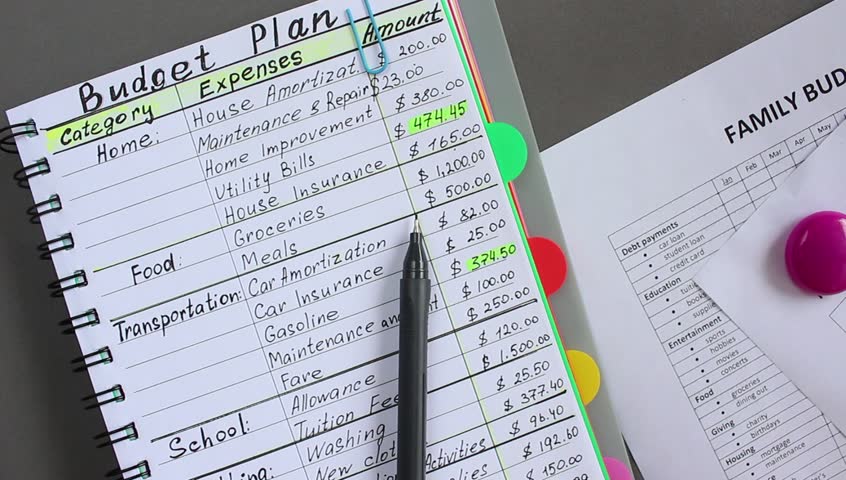 Budget Plan
Category Expenses Amount
Home: House Amortizat. $ 200.00
Maintenance & Repair $23.00
Home Improvement $ 380.00
Utility Bills $ 474.45
House Insurance $ 165.00
Food: Groceries $ 1,200.00
Meals $ 500.00
Transportation: Car Amortization $ 82.00
Car Insurance $ 25.00
Gasoline $ 374.50
Maintenance an $ 100.00
Fare $ 250.00
School: Allowance $ 120.00
Tuition Fee $ 1.500.00
Washing $ 25.50
New clot $ 377.40
Activities $ 96.40
lies $ 192.60
$ 150.00
FAMILY BUD
Jan Feb Mar Apr May
Debt payments
• car loan
• student loan
• credit card
Education
• tuiti
• books
• supplie
Entertainment
• sports
• hobbies
• movies
• concerts
Food • groceries
• dining out
Giving • charity
• birthdays
Housing • mortgage
• maintenance